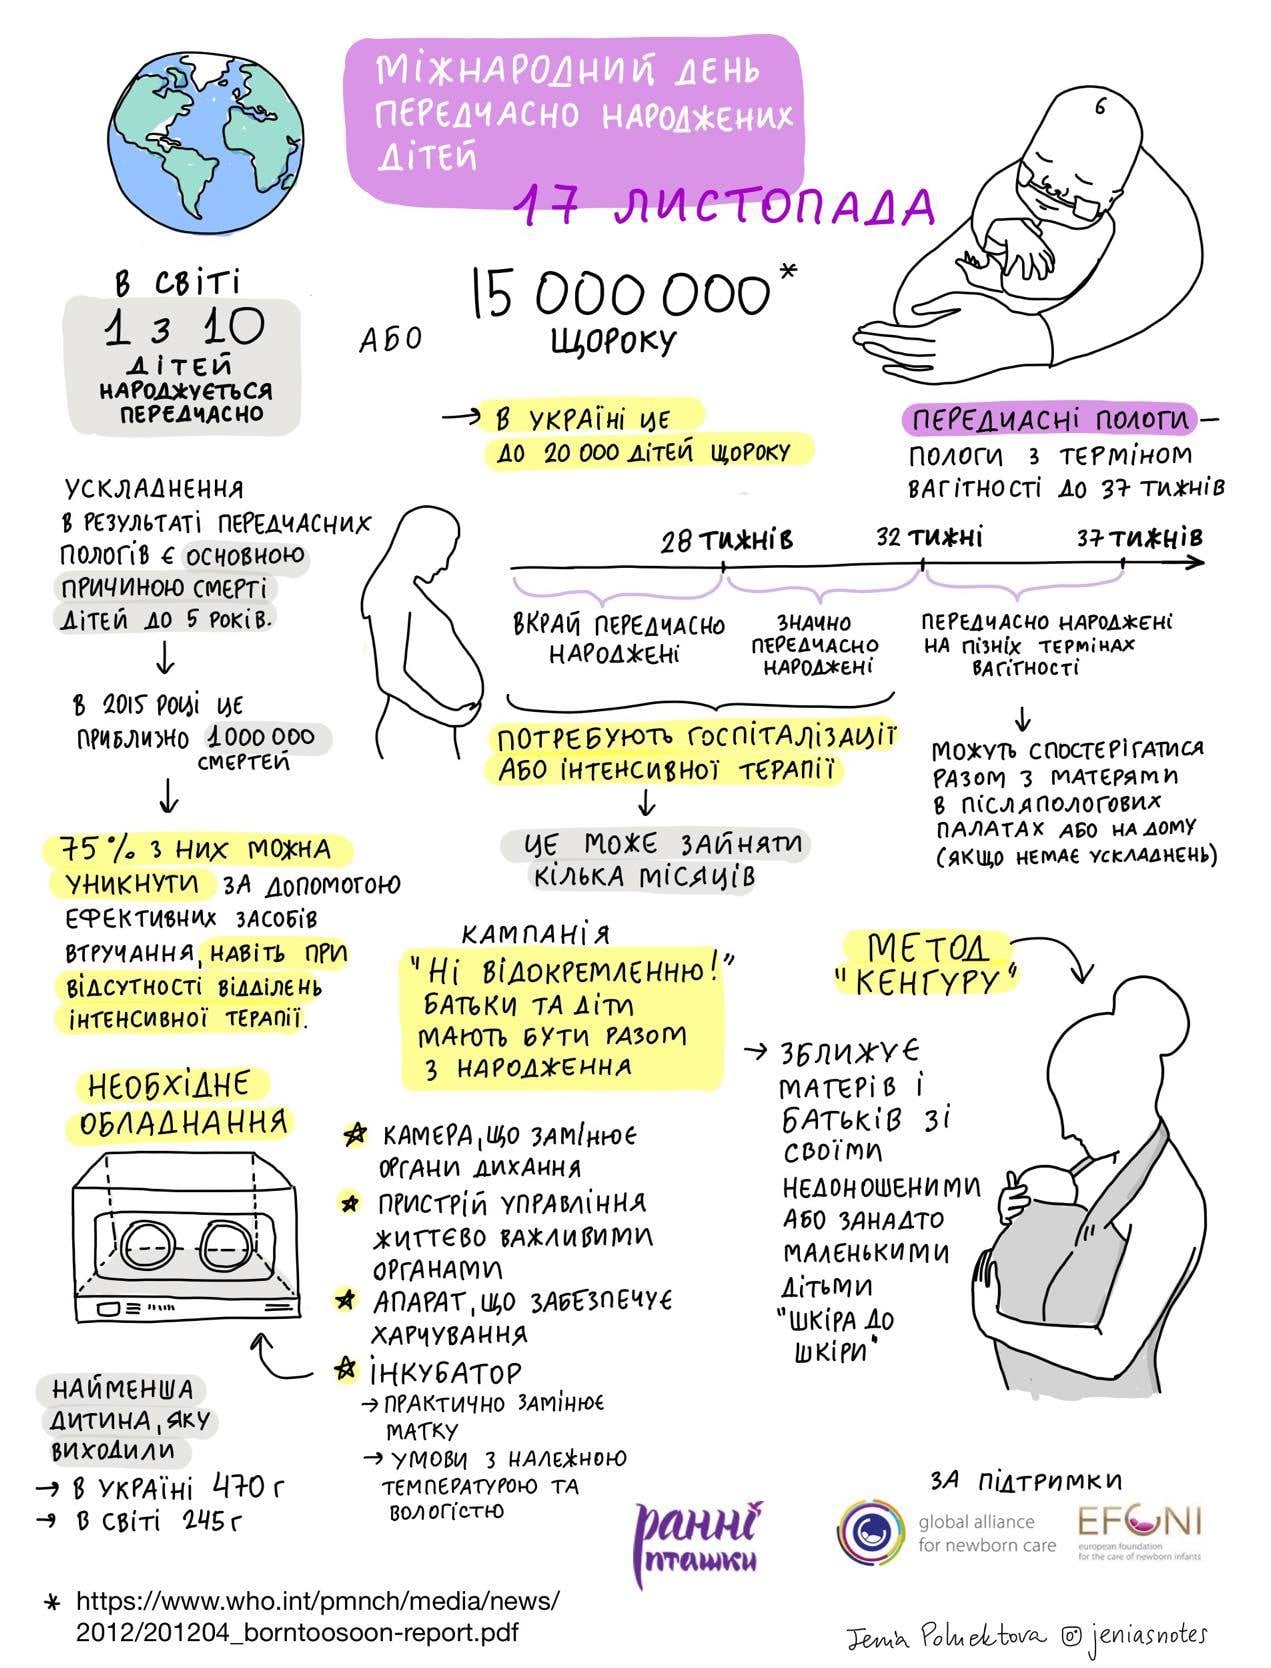 МІЖНАРОДНИЙ ДЕНЬ
ПЕРЕДЧАСНО НАРОДЖЕНИХ
ДІТЕЙ
17 ЛИСТОПАДА
В СВІТІ
1 З 10
ДІТЕЙ
НАРОДЖУЄТЬСЯ
ПЕРЕДЧАСНО
АБО
15 000 000*
ЩОРОКУ
→ В УКРАЇНІ ЦЕ
ДО 20 000 ДІТЕЙ ЩОРОКУ
ПЕРЕДЧАСНІ ПОЛОГИ —
ПОЛОГИ З ТЕРМІНОМ
ВАГІТНОСТІ ДО 37 ТИЖНІВ
УСКЛАДНЕННЯ
В РЕЗУЛЬТАТІ ПЕРЕДЧАСНИХ
ПОЛОГІВ Є ОСНОВНОЮ
ПРИЧИНОЮ СМЕРТІ
ДІТЕЙ ДО 5 РОКІВ.
В 2015 РОЦІ ЦЕ
ПРИБЛИЗНО 1000 000
СМЕРТЕЙ
75% З НИХ МОЖНА
УНИКНУТИ ЗА ДОПОМОГОЮ
ЕФЕКТИВНИХ ЗАСОБІВ
ВТРУЧАННЯ, НАВІТЬ ПРИ
ВІДСУТНОСТІ ВІДДІЛЕНЬ
ІНТЕНСИВНОЇ ТЕРАПІЇ.
28 ТИЖНІВ
32 ТИЖНІ
37 ТИЖНІВ
ВКРАЙ ПЕРЕДЧАСНО
НАРОДЖЕНІ
ЗНАЧНО
ПЕРЕДЧАСНО
НАРОДЖЕНІ
ПЕРЕДЧАСНО НАРОДЖЕНІ
НА ПІЗНІХ ТЕРМІНАХ
ВАГІТНОСТІ
ПОТРЕБУЮТЬ ГОСПІТАЛІЗАЦІЇ
АБО ІНТЕНСИВНОЇ ТЕРАПІЇ
ЦЕ МОЖЕ ЗАЙНЯТИ
КІЛЬКА МІСЯЦІВ
МОЖУТЬ СПОСТЕРІГАТИСЯ
РАЗОМ З МАТЕРЯМИ
В ПІСЛЯПОЛОГОВИХ
ПАЛАТАХ АБО НА ДОМУ
(ЯКЩО НЕМАЄ УСКЛАДНЕНЬ)
КАМПАНІЯ
"НІ ВІДОКРЕМЛЕННЮ!"
БАТЬКИ ТА ДІТИ
МАЮТЬ БУТИ РАЗОМ
З НАРОДЖЕННЯ
МЕТОД
"КЕНГУРУ"
→ ЗБЛИЖУЄ
МАТЕРІВ І
БАТЬКІВ ЗІ
СВОЇМИ
НЕДОНОШЕНИМИ
АБО ЗАНАДТО
МАЛЕНЬКИМИ
ДІТЬМИ
"ШКІРА ДО
ШКІРИ"
НЕОБХІДНЕ
ОБЛАДНАННЯ
КАМЕРА, ЩО ЗАМІНЮЄ
ОРГАНИ ДИХАННЯ
ПРИСТРІЙ УПРАВЛІННЯ
ЖИТТЄВО ВАЖЛИВИМИ
ОРГАНАМИ
АПАРАТ, ЩО ЗАБЕЗПЕЧУЄ
ХАРЧУВАННЯ
ІНКУБАТОР
→ ПРАКТИЧНО ЗАМІНЮЄ
МАТКУ
→ УМОВИ З НАЛЕЖНОЮ
ТЕМПЕРАТУРОЮ ТА
ВОЛОГІСТЮ
НАЙМЕНША
ДИТИНА, ЯКУ
ВИХОДИЛИ
→ В УКРАЇНІ 470 г
→ В СВІТІ 245 г
ЗА ПІДТРИМКИ
ранні
пташки
global alliance
for newborn care
EFCNI
european foundation
for the care of newborn infants
* https://www.who.int/pmnch/media/news/
2012/201204_borntoosoon-report.pdf
Jenia Poluektova jeniasnotes